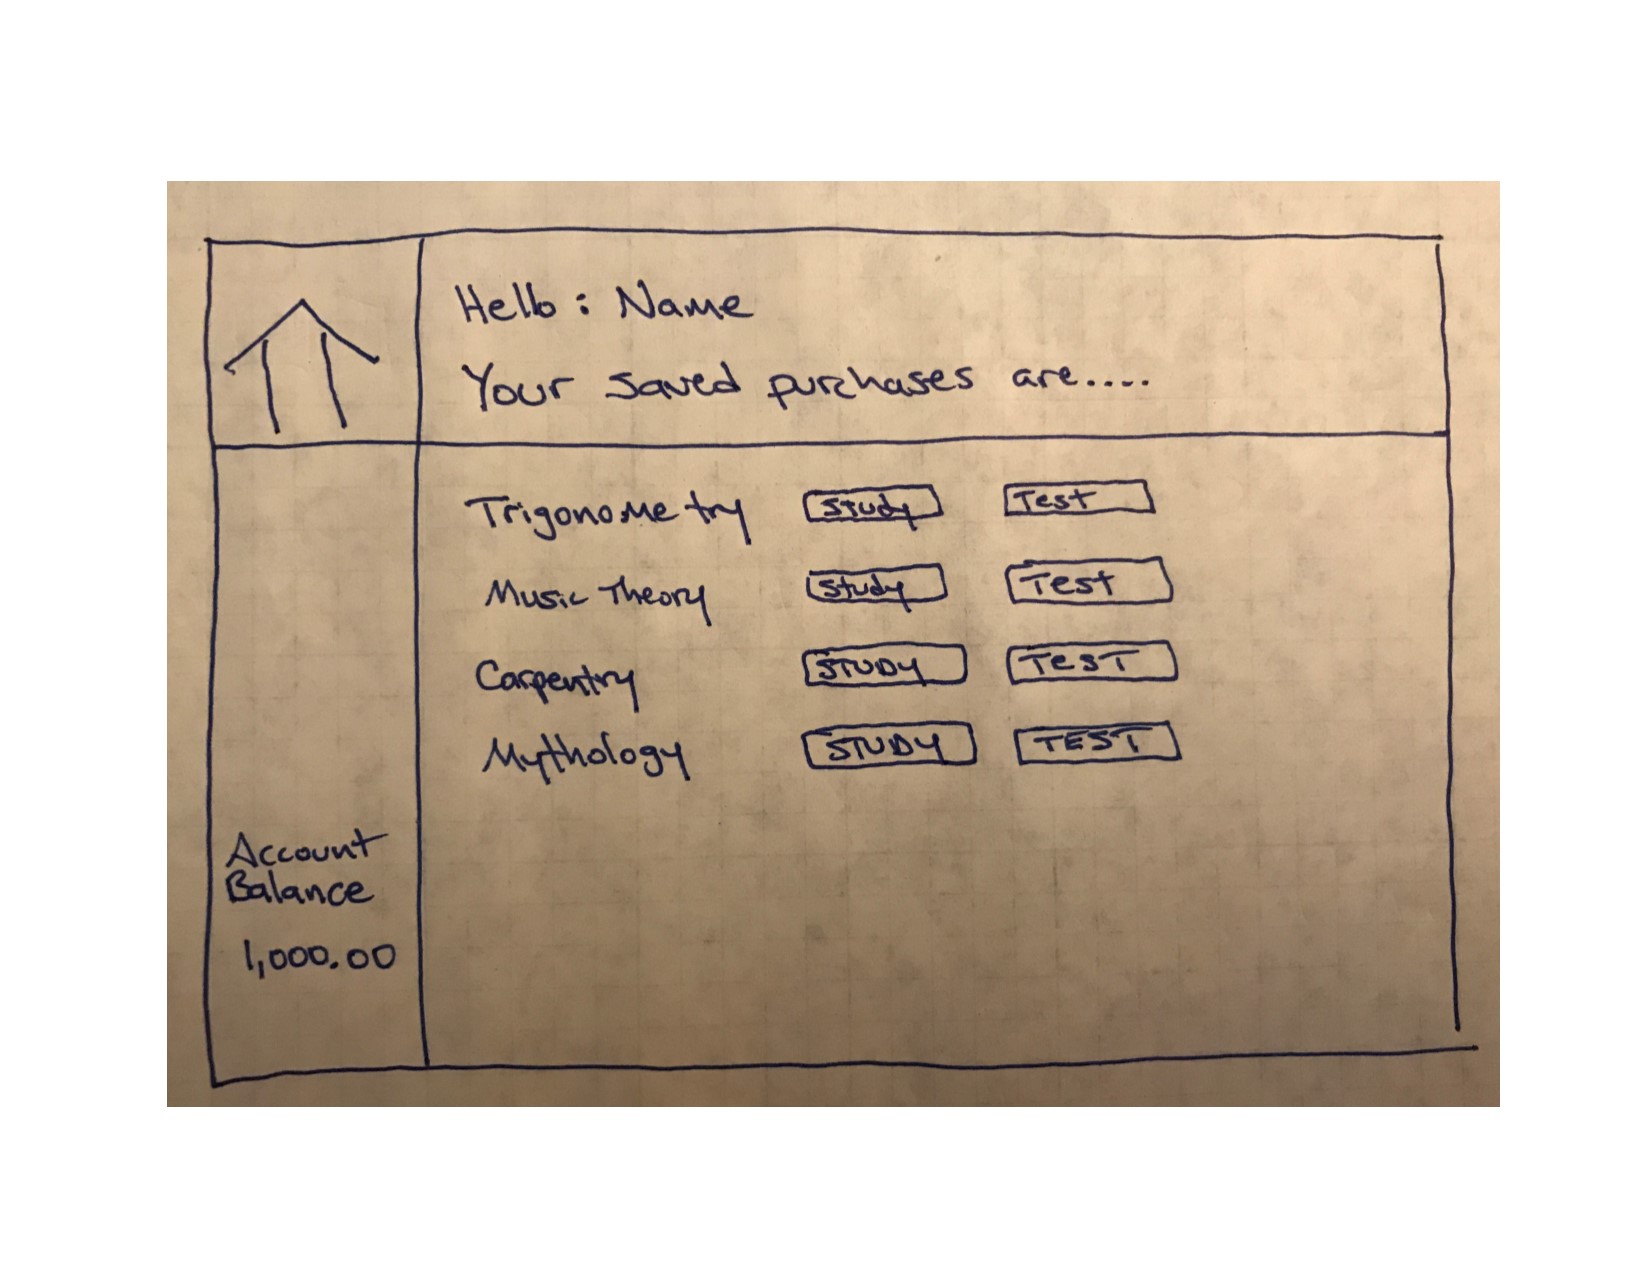 Hello : Name
Your saved purchases are....
Trigonometry Study Test
Music Theory Study Test
Carpentry STUDY TEST
Mythology STUDY TEST
Account
Balance
1,000.00